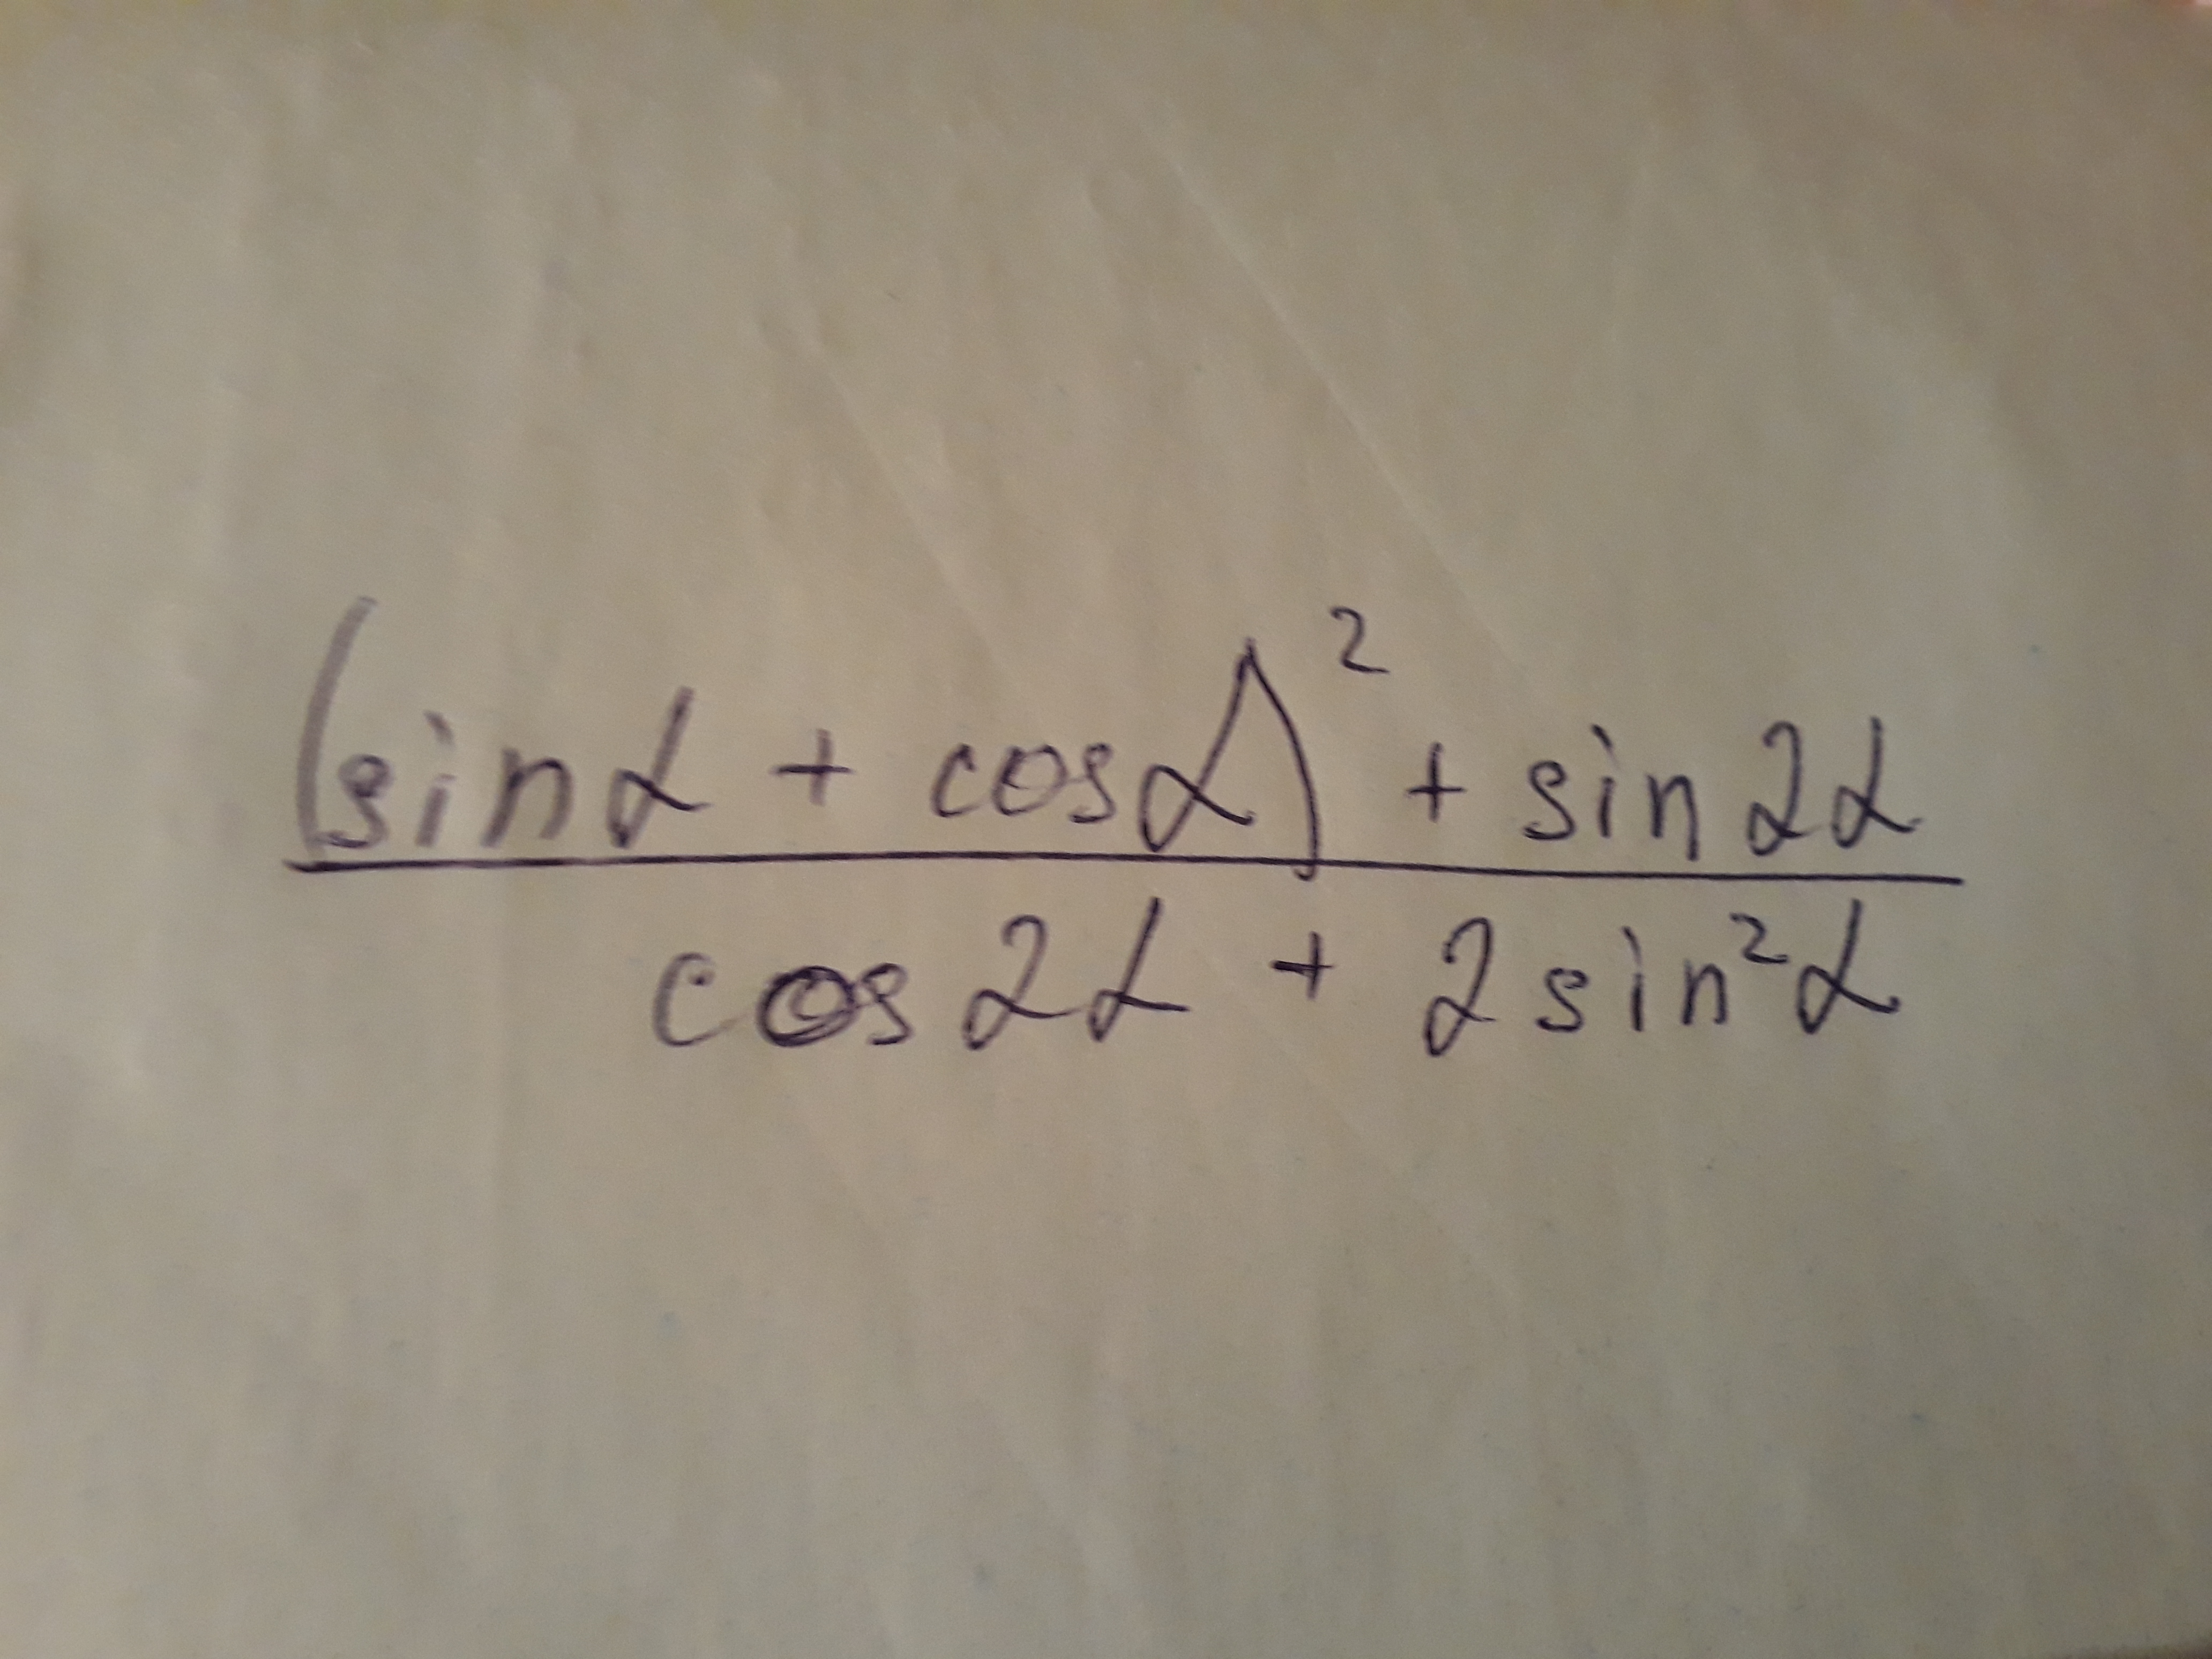 (sinα + cosα)² + sin2α
cos2α + 2sin²α